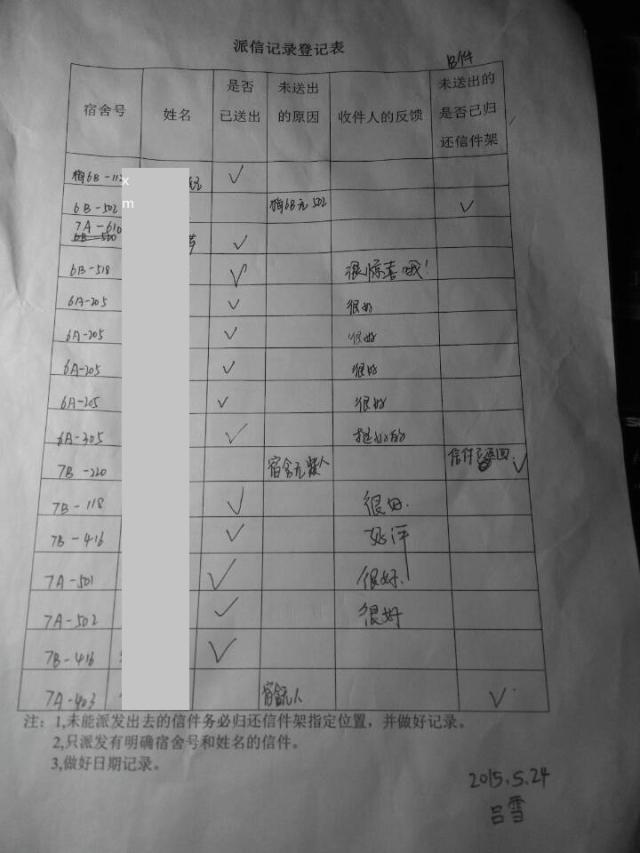 派信记录登记表
B件
宿舍号 姓名 是否已送出 未送出的原因 收件人的反馈 未送出的是否已归还信件架
梅6B-112 x ✓
6B-502 m 梅6B无502 ✓
7A-610
✓
6B-518 ✓ 很惊喜哦!
6A-205 ✓ 很好
6A-205 ✓ 很好
6A-205 ✓ 很好
6A-205 ✓ 很好
6A-305 ✓ 挺
7B-220 宿舍无 人 信件已 回 ✓
7B-118 ✓ 很好.
7B-416 ✓ 好评
7A-501 ✓ 很好.
7A-502 ✓ 很好
7B-416 ✓
7A-403 宿舍无人 ✓
注：1,未能派发出去的信件务必归还信件架指定位置，并做好记录。
2,只派发有明确宿舍号和姓名的信件。
3,做好日期记录。
2015.5.24
吕雪